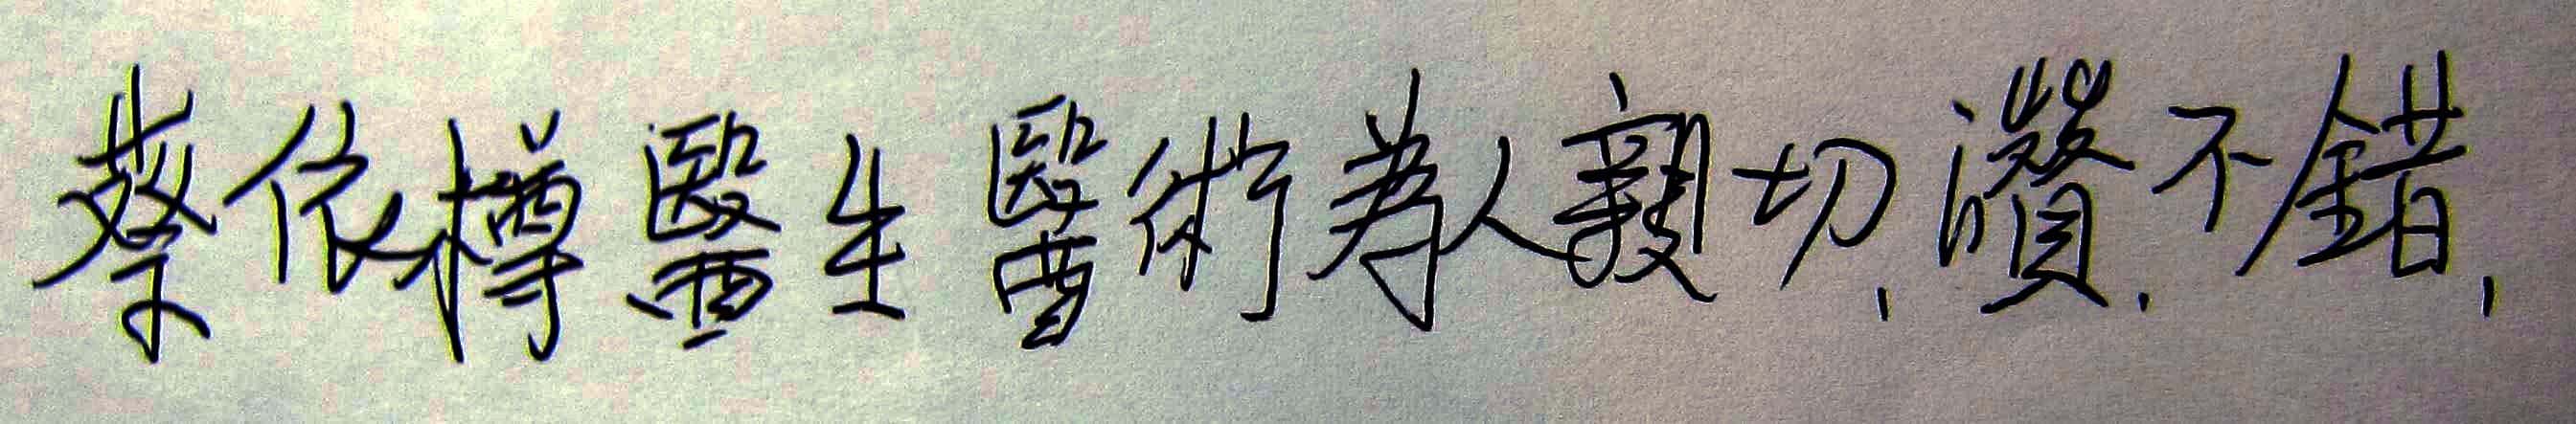 蔡依樽醫生醫術為人親切、讚.不錯,